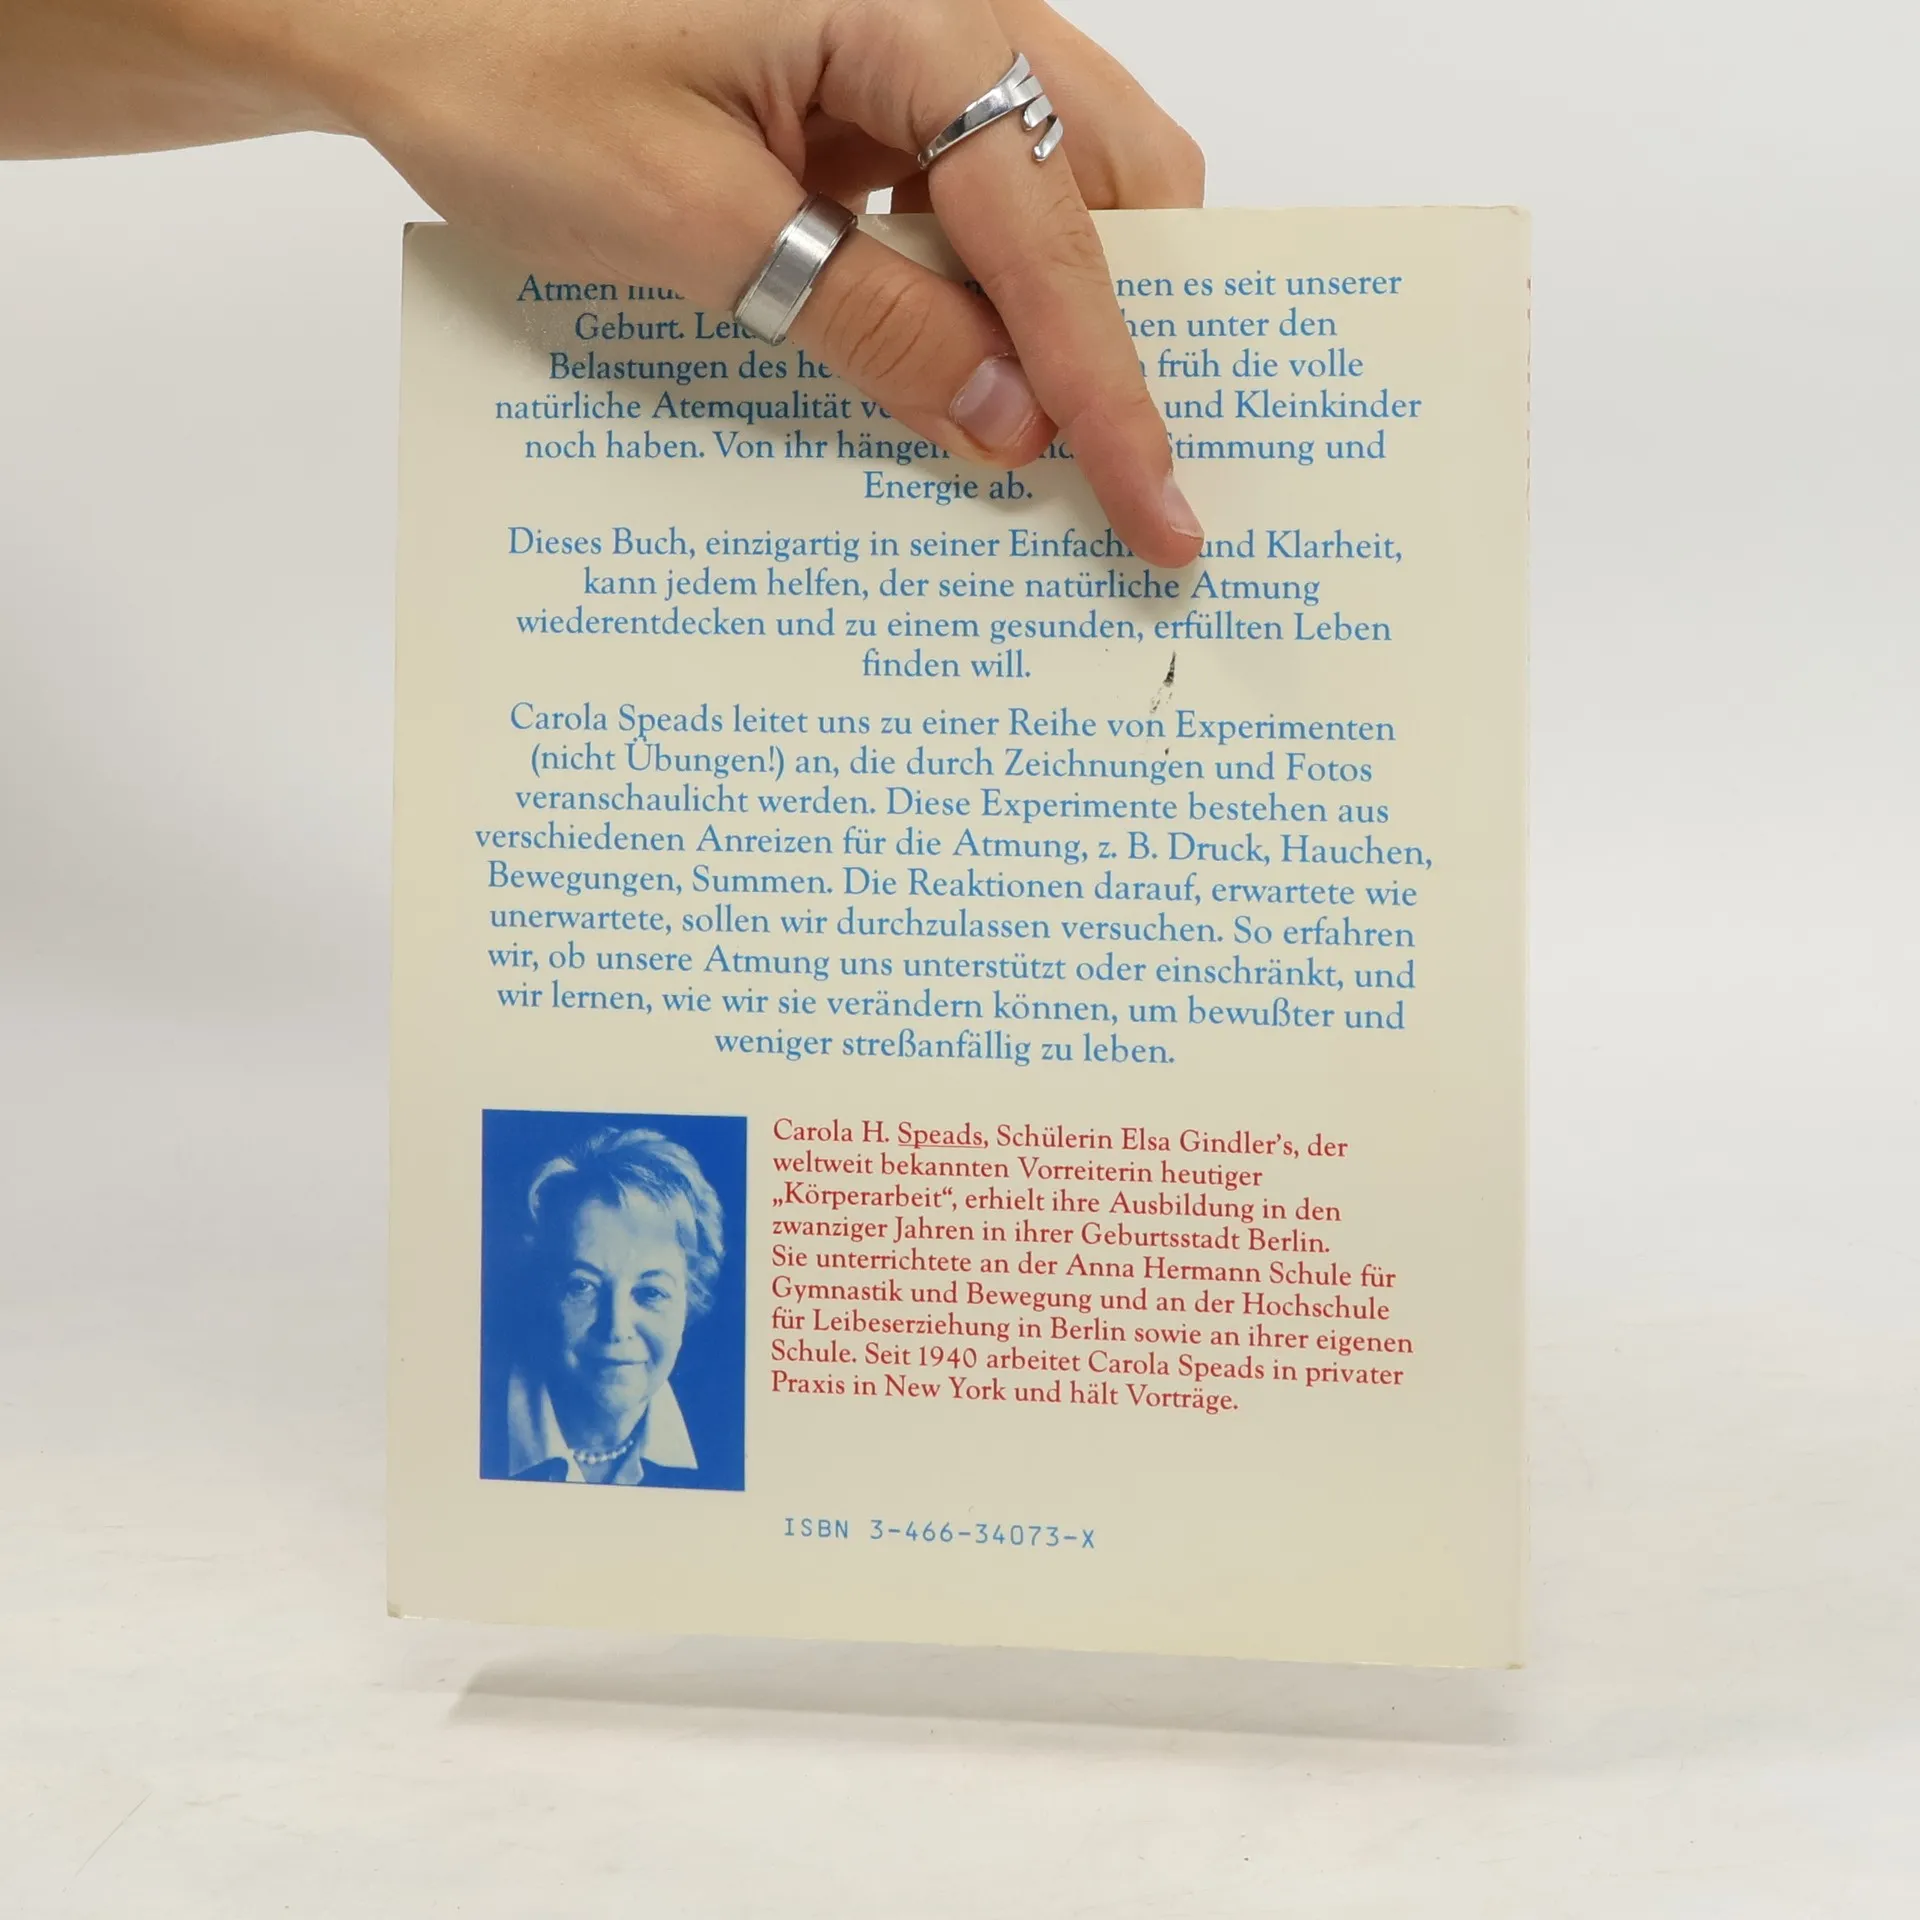 Atmen nen es seit unserer
Geburt. unter den
Belastungen des früh die volle
natürliche Atemqualität und Kleinkinder
noch haben. Von ihr hängen Stimmung und
Energie ab.
Dieses Buch, einzigartig in seiner und Klarheit,
kann jedem helfen, der seine natürliche Atmung
wiederentdecken und zu einem gesunden, erfüllten Leben
finden will.
Carola Speads leitet uns zu einer Reihe von Experimenten
(nicht Übungen!) an, die durch Zeichnungen und Fotos
veranschaulicht werden. Diese Experimente bestehen aus
verschiedenen Anreizen für die Atmung, z. B. Druck, Hauchen,
Bewegungen, Summen. Die Reaktionen darauf, erwartete wie
unerwartete, sollen wir durchzulassen versuchen. So erfahren
wir, ob unsere Atmung uns unterstützt oder einschränkt, und
wir lernen, wie wir sie verändern können, um bewußter und
weniger streßanfällig zu leben.
Carola H. Speads, Schülerin Elsa Gindler’s, der
weltweit bekannten Vorreiterin heutiger
„Körperarbeit“, erhielt ihre Ausbildung in den
zwanziger Jahren in ihrer Geburtsstadt Berlin.
Sie unterrichtete an der Anna Hermann Schule für
Gymnastik und Bewegung und an der Hochschule
für Leibeserziehung in Berlin sowie an ihrer eigenen
Schule. Seit 1940 arbeitet Carola Speads in privater
Praxis in New York und hält Vorträge.
ISBN 3-466-34073-X